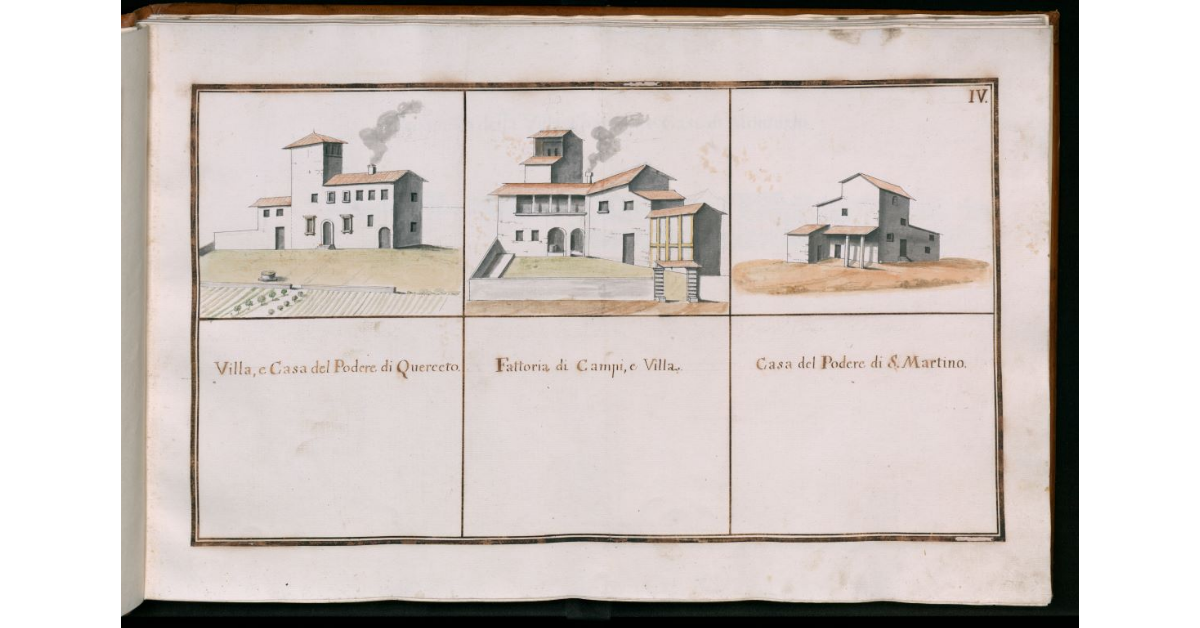 IV.
Villa, e Casa del Podere di Querceto.
Fattoria di Campi, e Villa.
Casa del Podere di S. Martino.